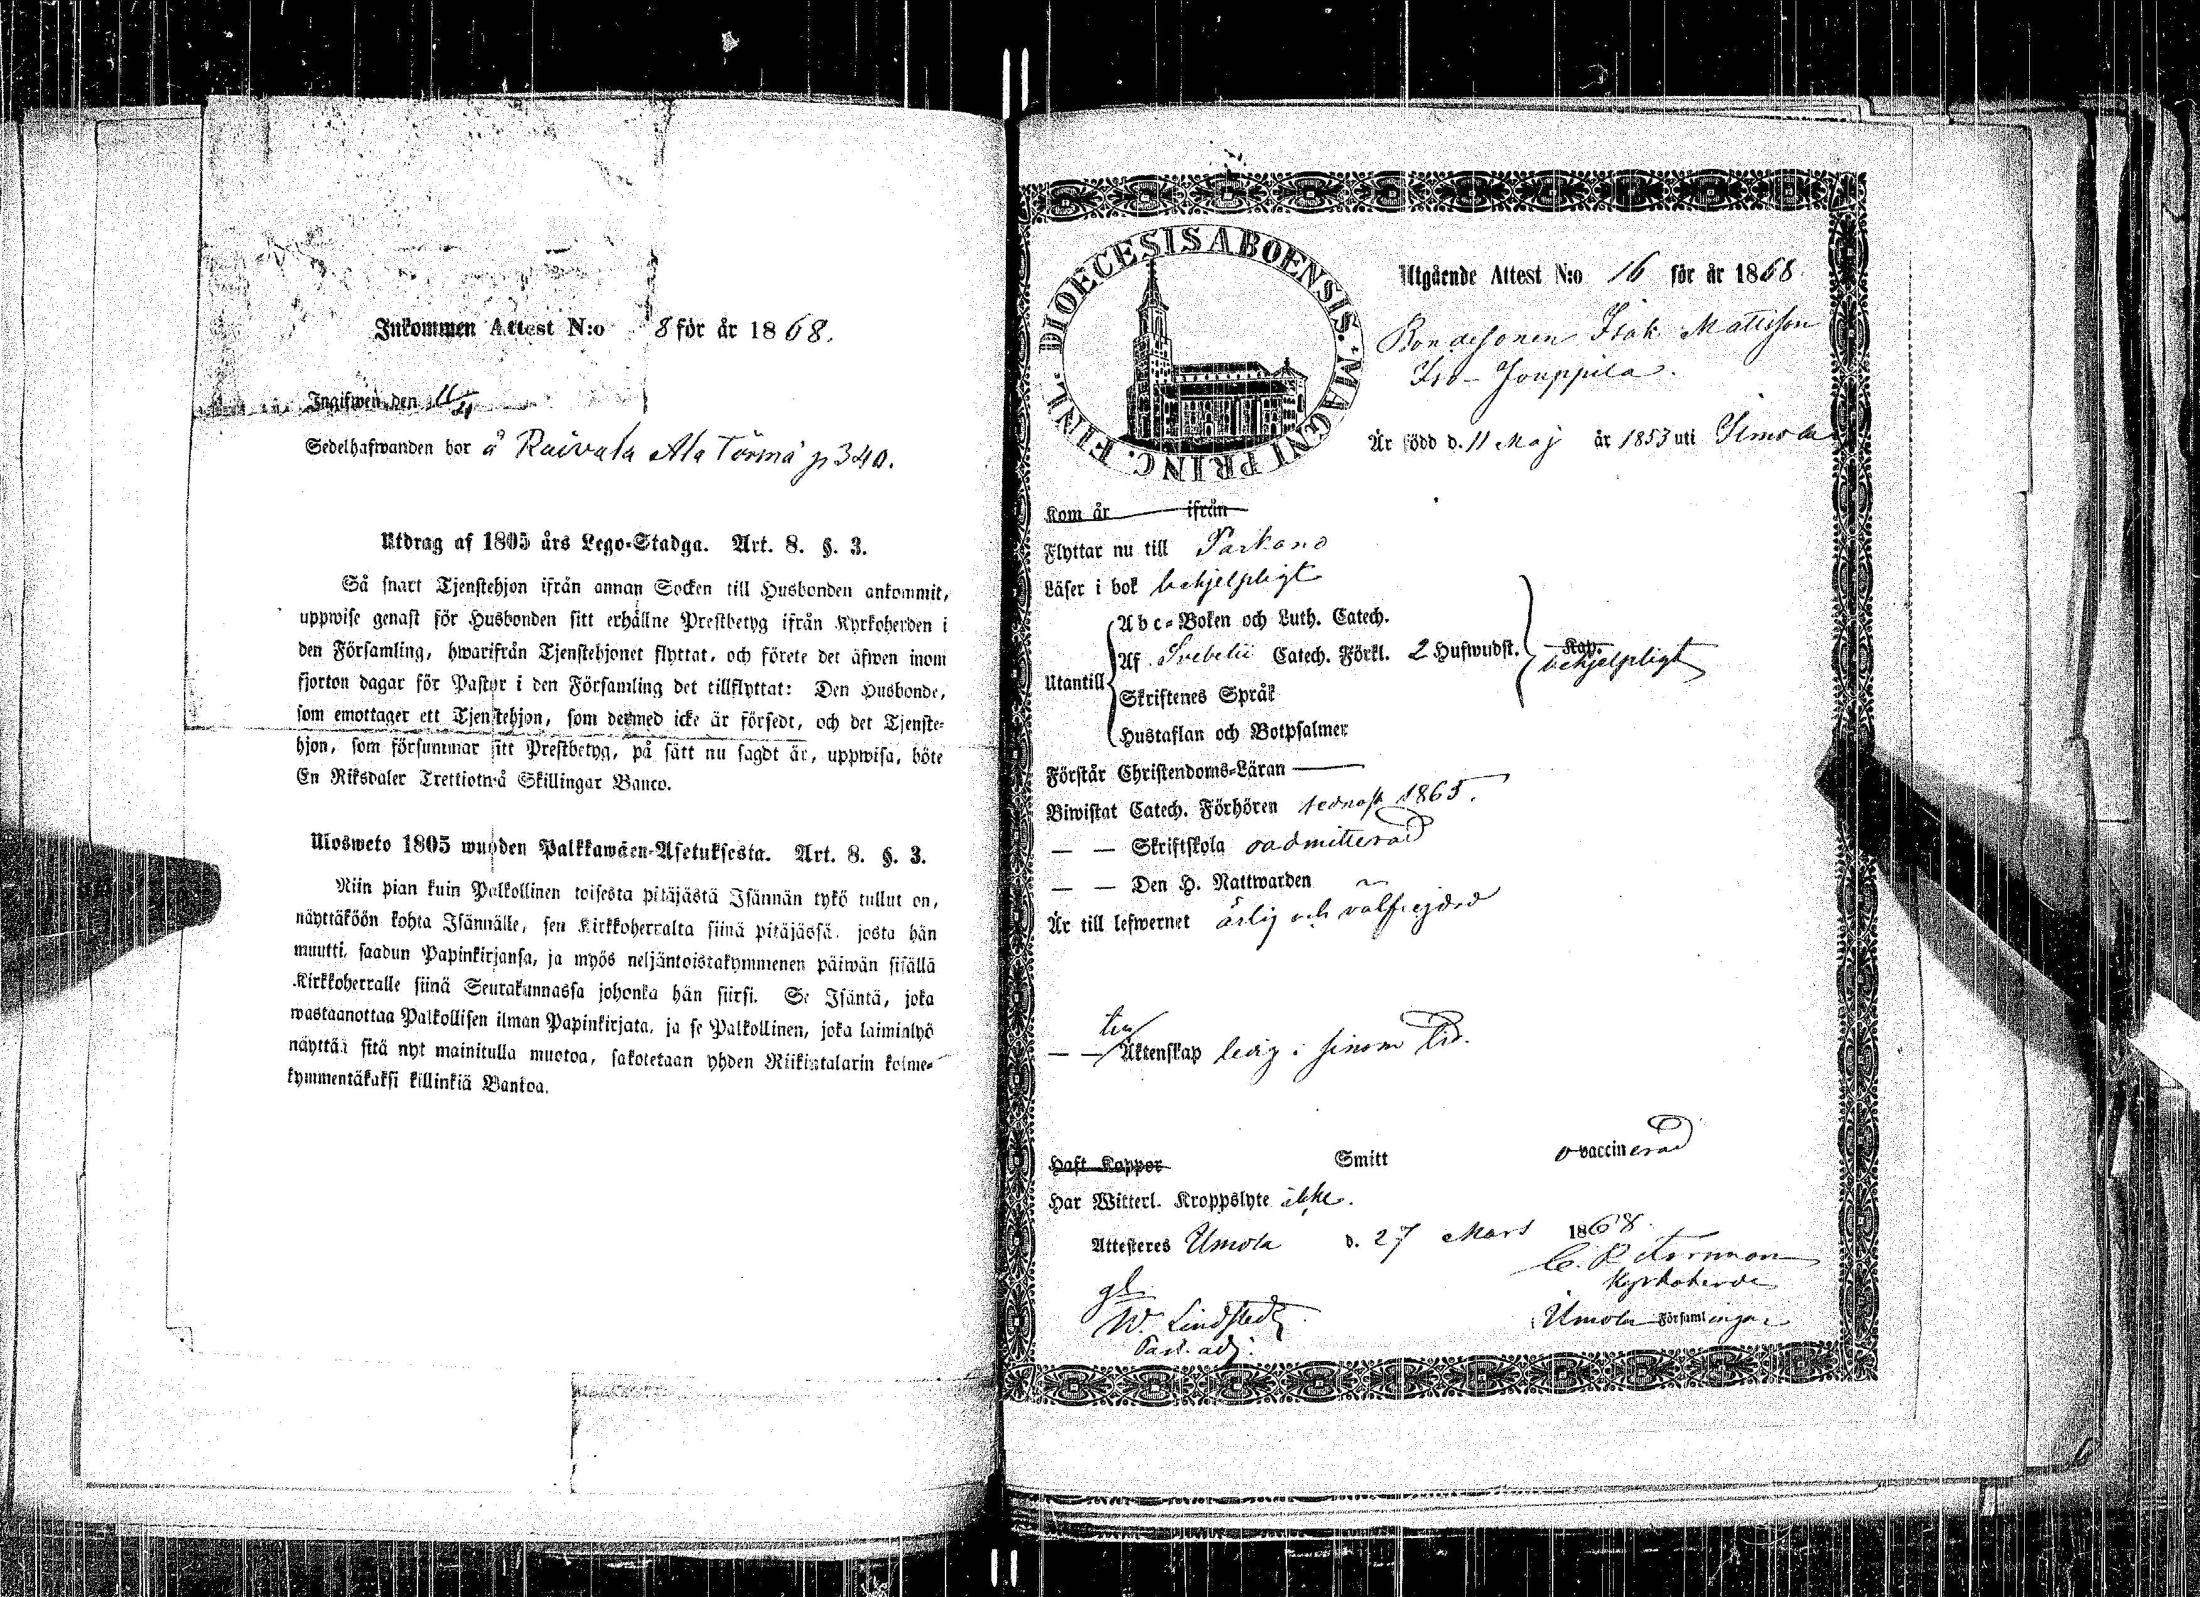 Inkommen Attest N:o 8 för år 1868.
Ingifwen den 11/4
Sedelhafwanden bor å Raivala Ala Törmä p 340.
Utdrag af 1805 års Lego-Stadga. Art. 8. §. 3.
Så snart Tjenstehjon ifrån annan Socken till Husbonden ankommit,
uppwise genast för Husbonden sitt erhållne Prestbetyg ifrån Kyrkoherden i
den Församling, hwarifrån Tjenstehjonet flyttat, och förete det äfwen inom
fjorton dagar för Pastor i den Församling det tillflyttat: Den Husbonde,
som emottager ett Tjenstehjon, som dermed icke är försedt, och det Tjenste-
hjon, som försummar sitt Prestbetyg, på sätt nu sagdt är, uppwisa, böte
En Riksdaler Trettiotwå Skillingar Banco.
Ulosweto 1805 wuoden Palkkawäen-Asetuksesta. Art. 8. §. 3.
Niin pian kuin Palkollinen toisesta pitäjästä Isännän tykö tullut on,
näyttäköön kohta Isännälle, sen Kirkkoherralta siinä pitäjässä, josta hän
muutti, saadun Papinkirjansa, ja myös neljäntoistakymmenen päiwän sisällä
Kirkkoherralle siinä Seurakunnassa johonka hän siirsi. Se Isäntä, joka
wastaanottaa Palkollisen ilman Papinkirjata, ja se Palkollinen, joka laiminlyö
näyttää sitä nyt mainitulla muotoa, sakotetaan yhden Riikintalarin kolme-
kymmentäkaksi killinkiä Bankoa.
DIOECESIS ABOENSIS. MAGNI PRINC. FINL.
Utgående Attest N:o 16 för år 1868
Bondesonen Isak Mattsson
Iso-Jouppila.
Är född d. 11 Maj år 1853 uti Ilmola
Kom år ifrån
Flyttar nu till Parkano
Läser i bok behjelpligt
Abc-Boken och Luth. Catech.
Utantill Af Svebelii Catech. Förkl. 2 Hufwudst. Kap. behjelpligt
Skriftenes Språk
Hustaflan och Botpsalmer
Förstår Christendoms-Läran
Biwistat Catech. Förhören sednast 1865.
— — Skriftskola oadmitterad
— — Den H. Nattwarden
Är till lefwernet ärlig och välfrejdad
— — till Äktenskap ledig i sinom tid.
Haft Koppor Smitt ovaccinerad
Har Witterl. Kroppslyte icke.
Attesteres Ilmola d. 27 Mars 1868
Kyrkoherde
W. Lindstedt Ilmola Församlingar
Past. adj.